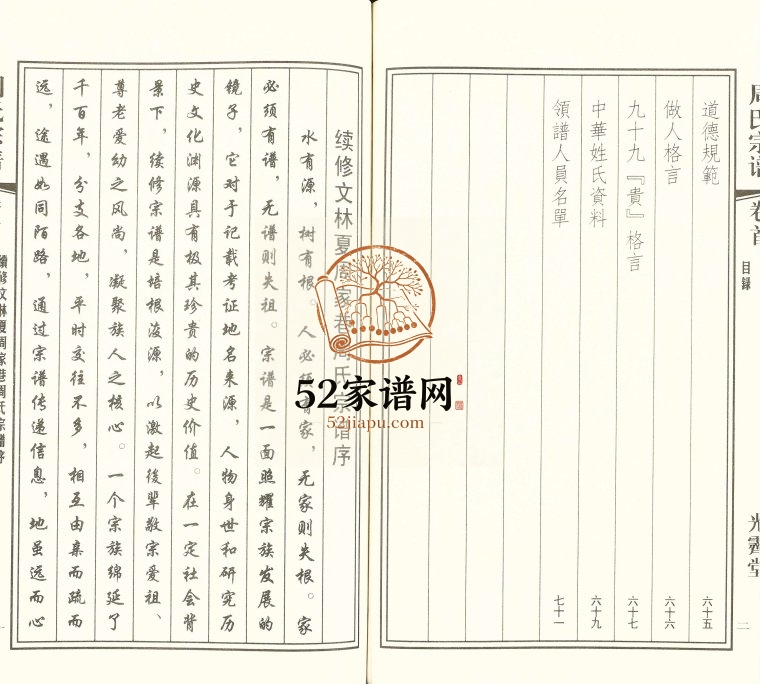 周氏宗谱
卷首
目録
光霽堂
二
道德規範
六十五
做人格言
六十六
九十九『貴』格言
六十七
中華姓氏資料
六十九
領譜人員名單
七十一
续修文林夏周家巷周氏宗谱序
水有源，树有根。人必须有家，无家则失根。家
必须有谱，无谱则失祖。宗谱是一面照耀宗族发展的
镜子，它对于记载考证地名来源，人物身世和研究历
史文化渊源具有极其珍贵的历史价值。在一定社会背
景下，续修宗谱是培根浚源，以激起後辈敬宗爱祖、
尊老爱幼之风尚，凝聚族人之核心。一个宗族绵延了
千百年，分支各地，平时交往不多，相互由亲而疏而
远，途遇如同陌路，通过宗谱传递信息，地虽远而心
續修文林夏周家巷周氏宗譜序
52家谱网
52jiapu.com